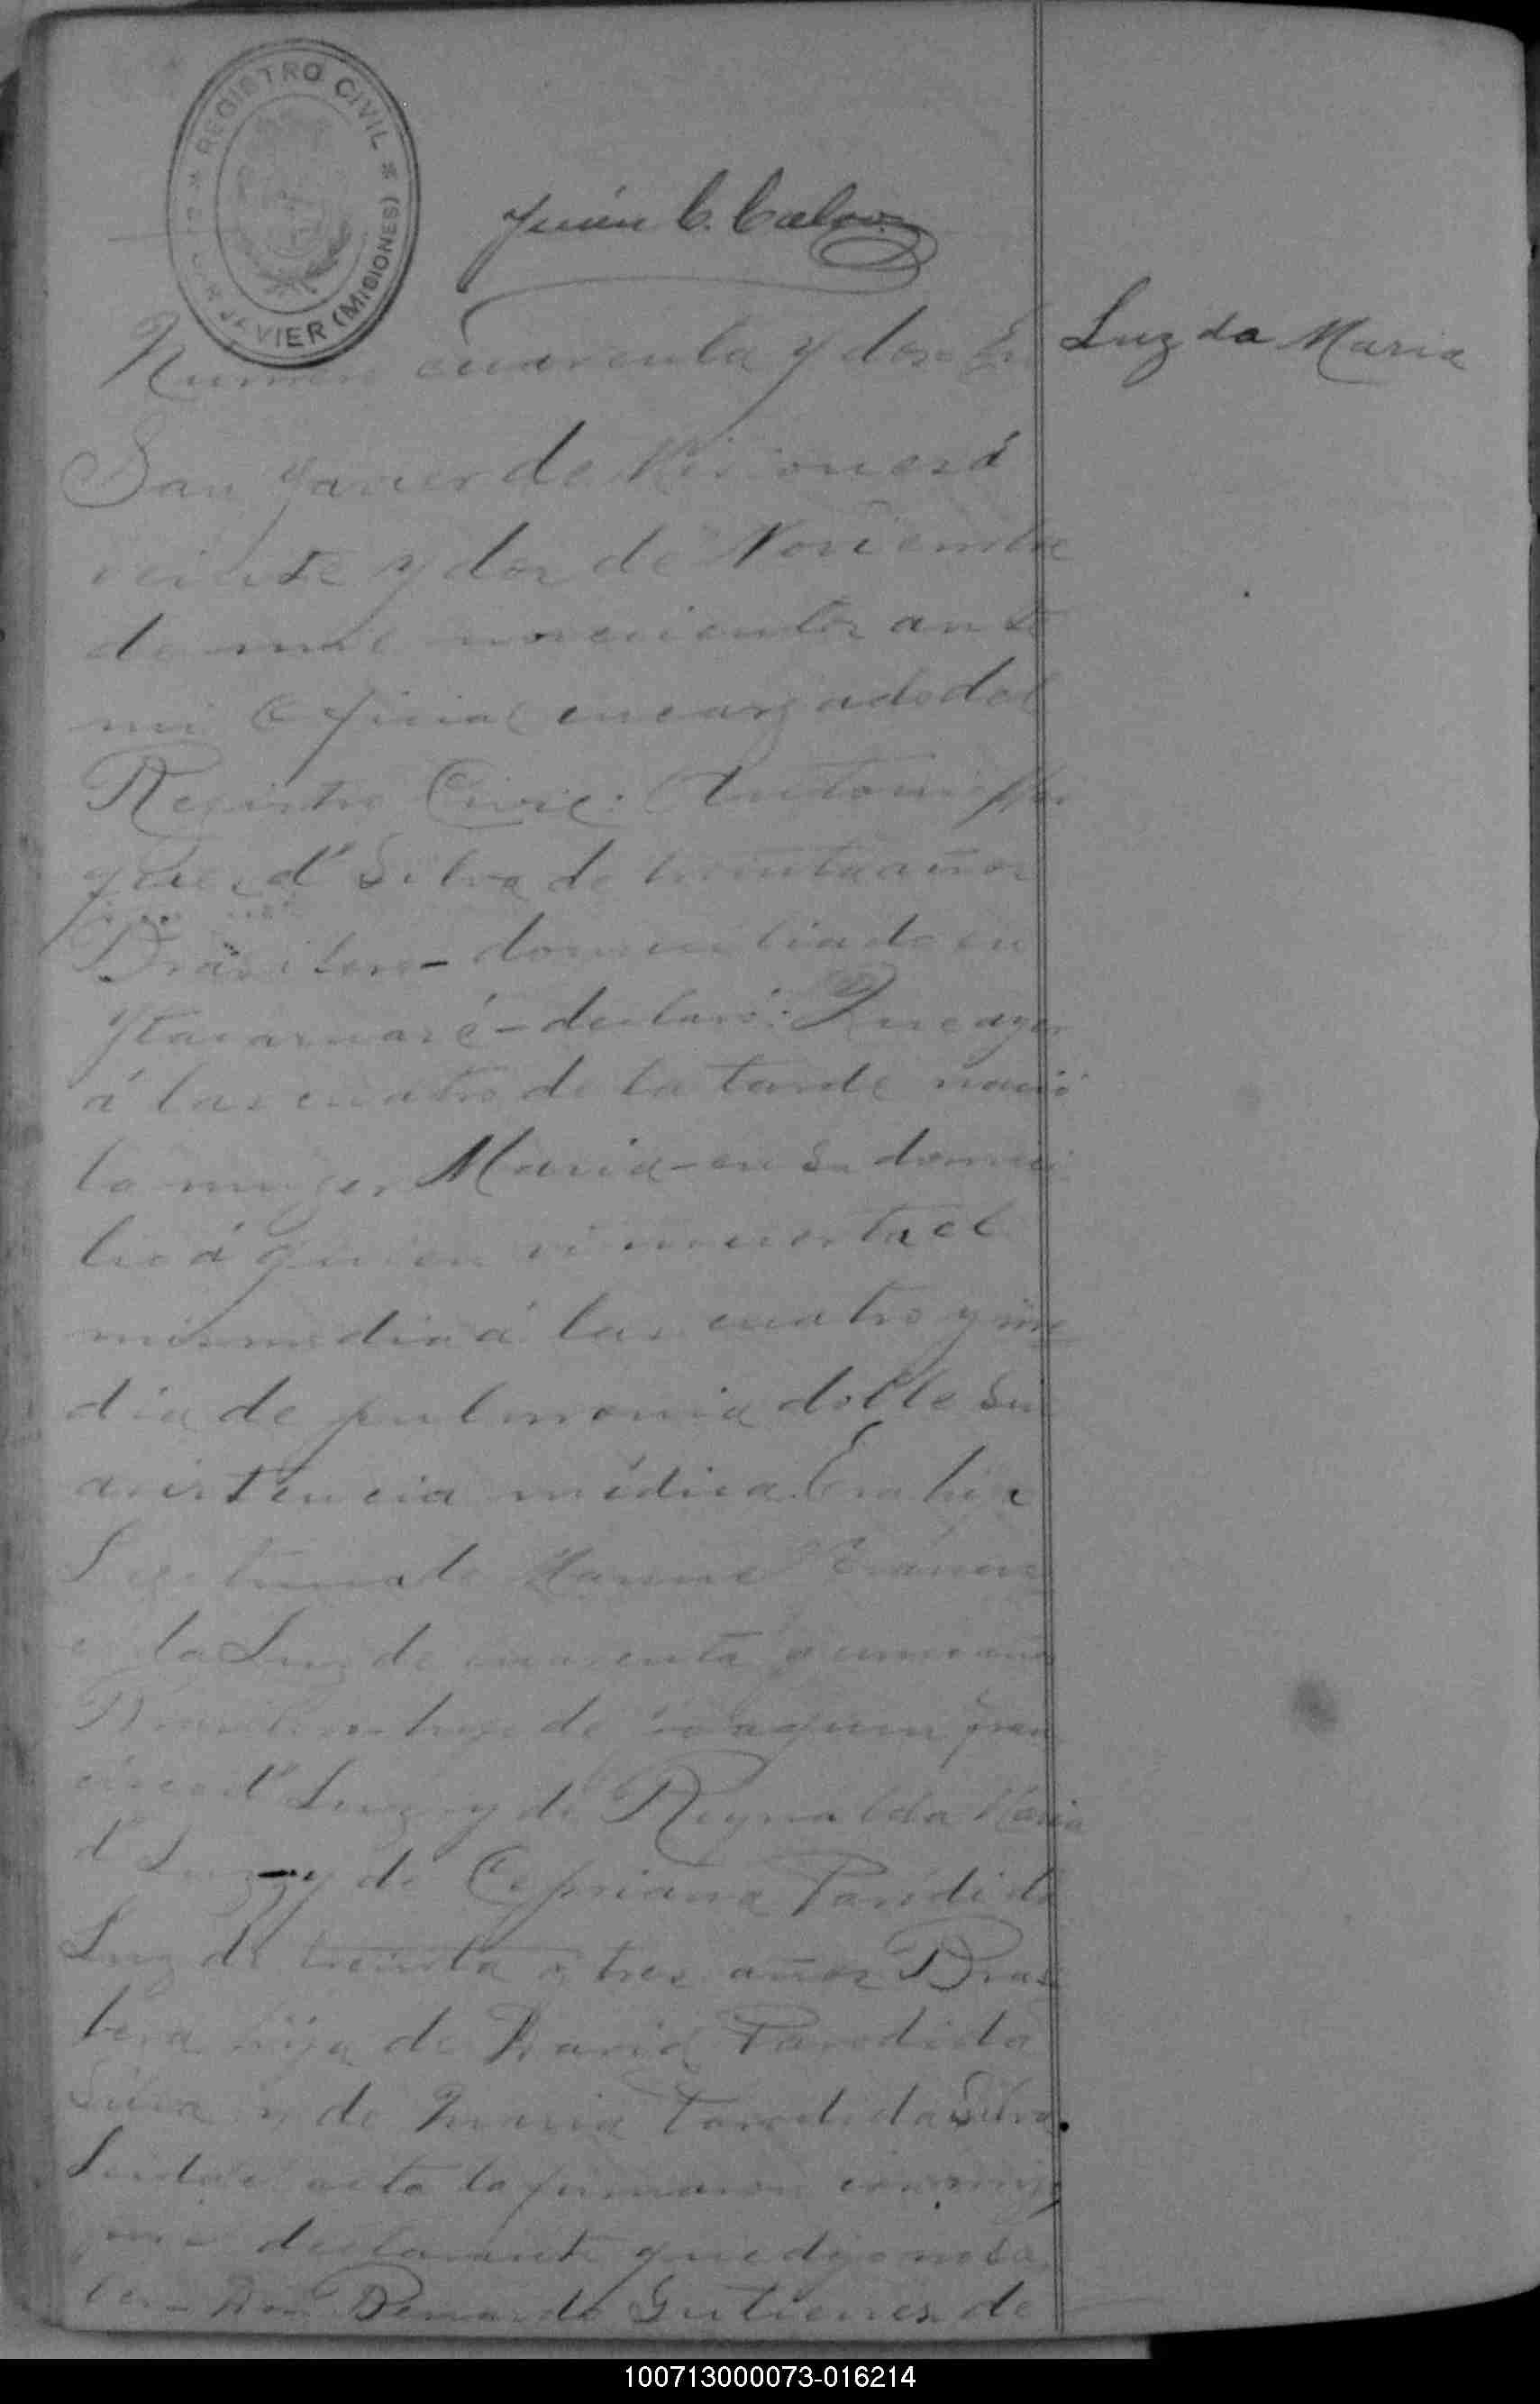 REGISTRO CIVIL
JAVIER (MISIONES)
Luz da Maria
Numero cuarenta y dos En
San Javier de Misiones á
veinte y dos de Noviembre
de mil novecientos ante
mi Oficial encargado del
Registro Civil: Antonio
d' Silva de treinta años
Brasilero - domiciliado en
declaró: Que ayer
á las cuatro de la tarde nació
la muger Maria - en su domici
lio á quien vi muerta el
mismo dia á las cuatro y me
dia de pulmonia doble sin
asistencia médica. Era hija
Legitima de Manuel
da Luz de cuarenta y años
Brasilero hijo de Joaquin Fran
cisco d' Luz y de Reynalda Maria
d' Luz - y de Cipriana da
Luz de treinta y tres años Brasi
lera hija de David da
Silva y de Maria da Silva.
Leida el acta la firmaron conmigo
por el declarante que dijo no sa
ber - Don Bernardo Gutierres de
100713000073-016214